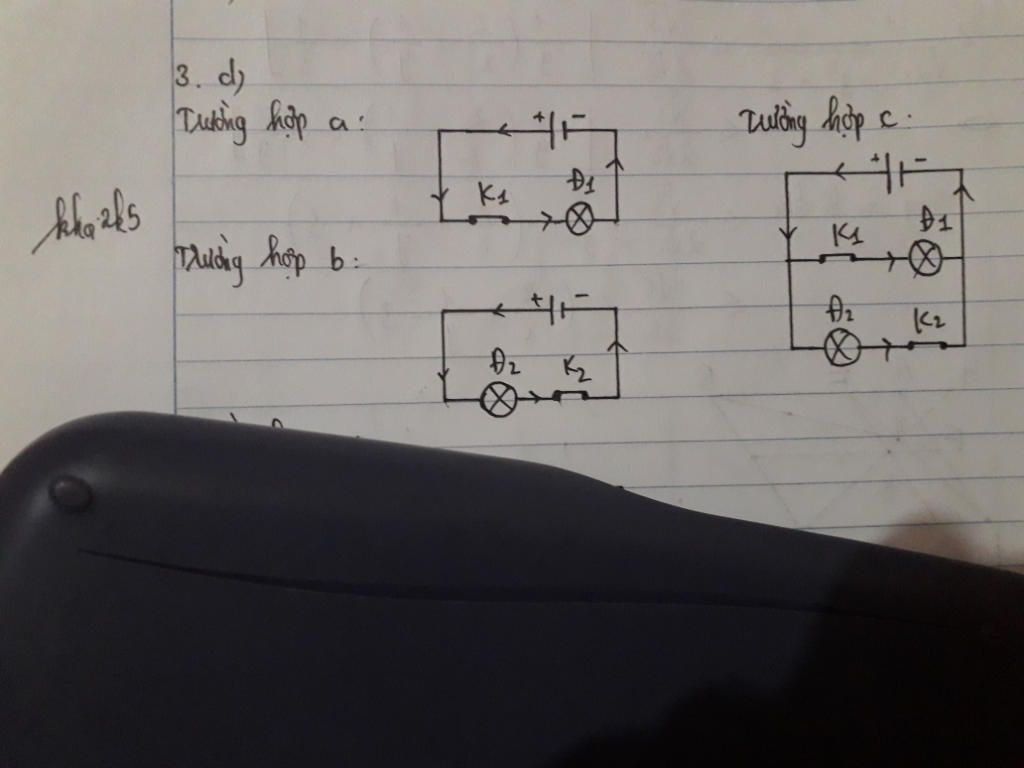 3. d)
Trường hợp a:
+ -
K1 Đ1
kha2k5
Trường hợp b:
+ -
Đ2 K2
Trường hợp c:
+ -
K1 Đ1
Đ2 K2